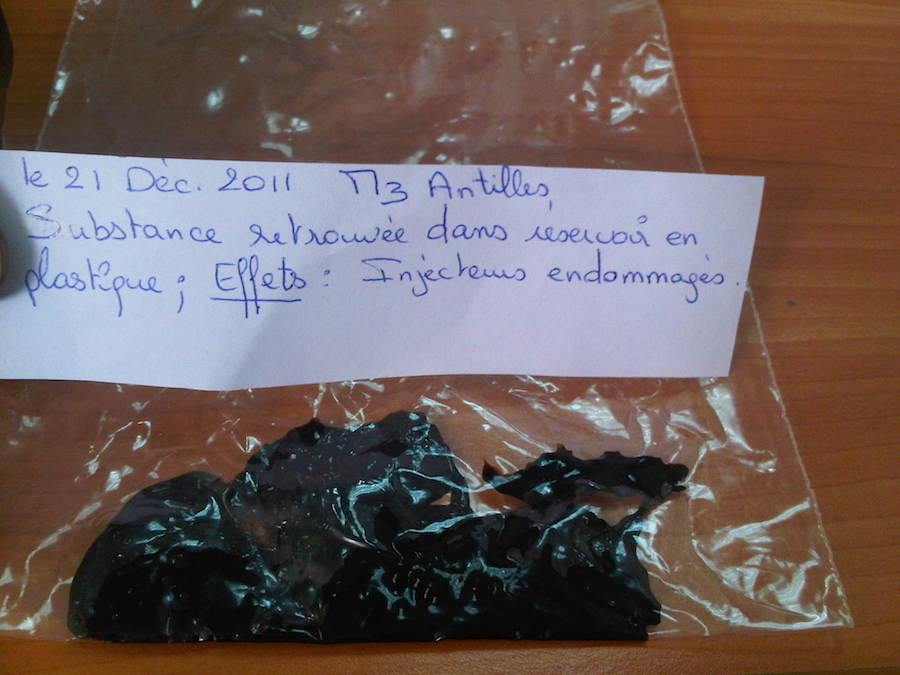 le 21 Déc. 2011 M3 Antilles,
Substance retrouvée dans réservoir en
plastique ; Effets : Injecteurs endommagés.